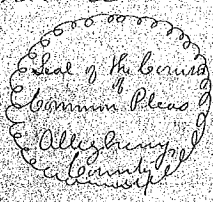 Seal of the Court
of
Common Pleas
Allegheny
County